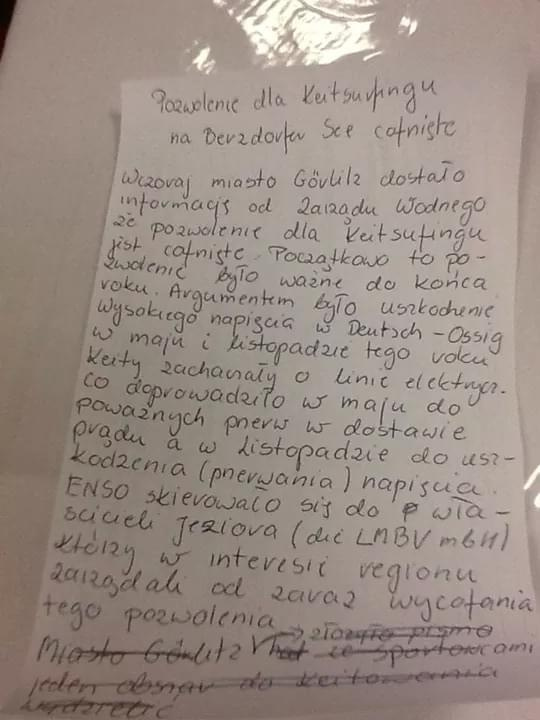 Pozwolenie dla Keitsurfingu
na Berzdorfer See cofnięte
Wczoraj miasto Görlitz dostało
informację od Zarządu Wodnego
że pozwolenie dla Keitsufingu
jist cofnięte. Początkowo to po-
zwolenie było ważne do końca
roku. Argumentem było uszkochenie
wysokiego napięcia w Deutsch-Ossig
w maju i Listopadzie tego roku
Keity zachaczały o linie elektrycz.
co doprowadziło w maju do
poważnych przerw w dostawie
prądu a w Listopadzie do usz-
kodzenia (przerwania) napięcia.
ENSO skierowało się do wła-
ścicieli jeziora (die LMBV mbH)
którzy w interesie regionu
zarządali od zaraz wycofania
tego pozwolenia → złożyło pismo
Miasto Görlitz hat ze sportowcami
jeden obszar do keitowania